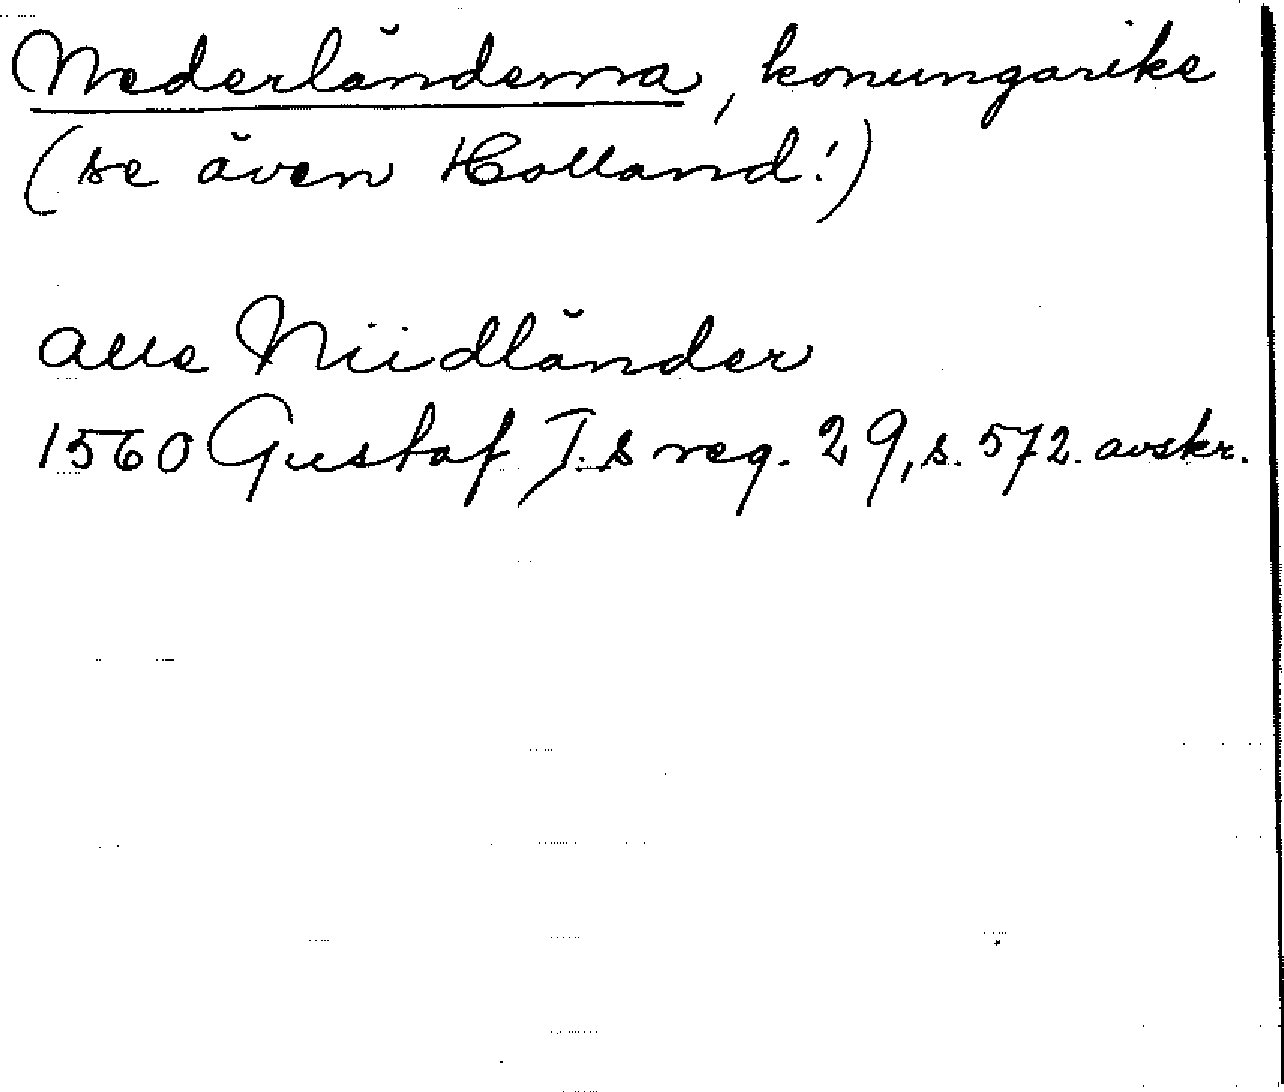 Nederländerna, konungarike
(se även Holland!)
alle Niidländer
1560 Gustaf I.s reg. 29, s. 572. avskr.